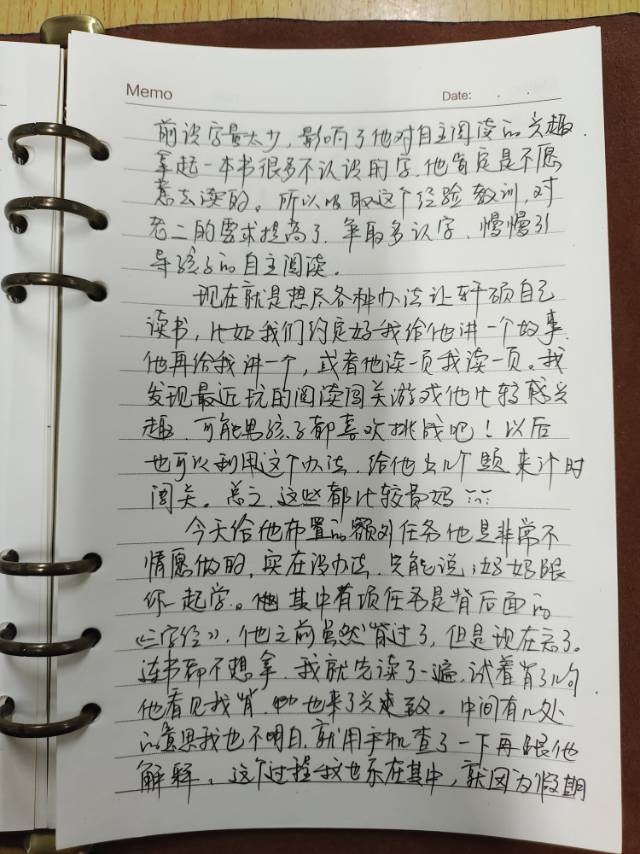 Memo Date:
前识字量太少，影响了他对自主阅读的兴趣.
拿起一本书很多不认识的字，他肯定是不愿
意去读的。所以吸取这个经验教训，对
老二的要求提高了，争取多认字，慢慢引
导孩子的自主阅读.
现在就是想尽各种办法让轩硕自己
读书，比如我们约定好我给他讲一个故事
他再给我讲一个，或者他读一页我读一页。我
发现最近玩的阅读闯关游戏他比较感兴
趣，可能男孩子都喜欢挑战吧！以后
也可以利用这个办法，给他出几个题来计时
闯关。总之，这些都比较费妈
今天给他布置的额外任务他是非常不
情愿做的，实在没办法，只能说，妈妈跟
你一起学。他其中有项任务是背后面的
《三字经》，他之前虽然背过了，但是现在忘了。
连书都不想拿，我就先读了一遍，试着背了几句
他看见我背，他也来了兴致。中间有几处
的意思我也不明白，就用手机查了一下再跟他
解释。这个过程我也乐在其中，就因为假期